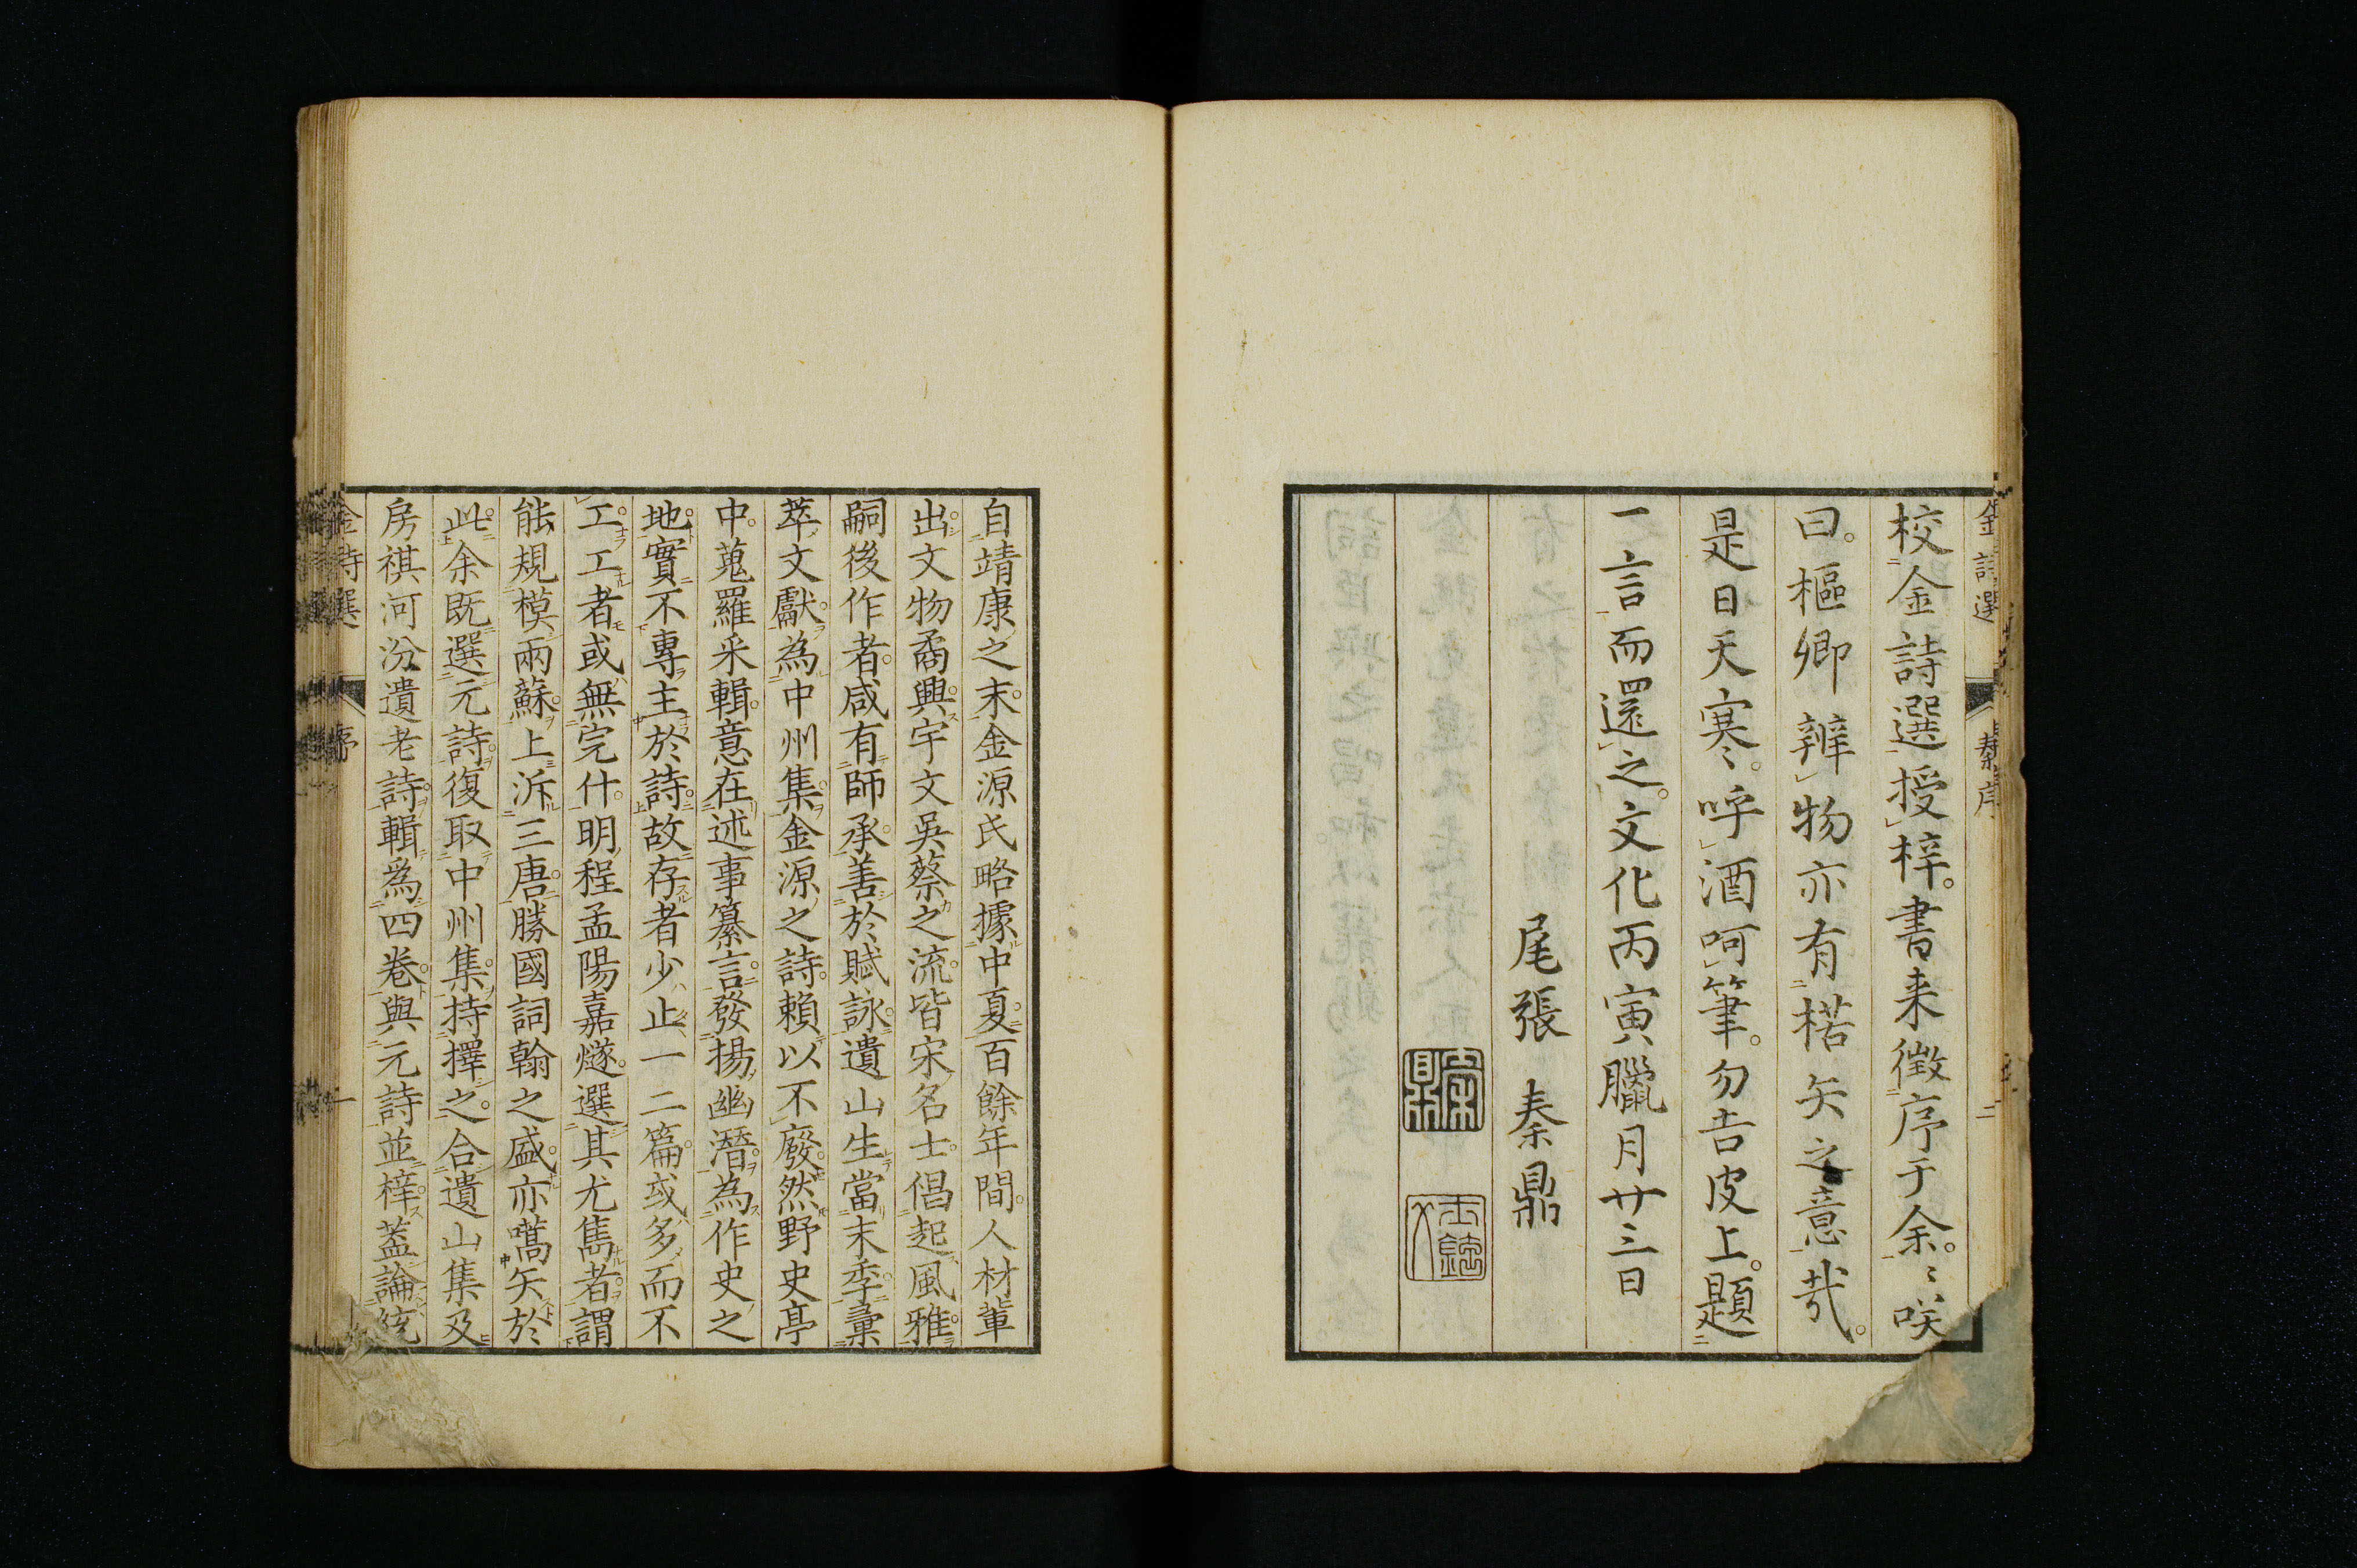 金詩選 秦序 二
校金詩選授梓。書来徵序于余。〻咲
曰。樞卿辨物亦有楛矢之意哉。
是日天寒〻。呼酒呵筆。勿告皮上。題
一言而還之。文化丙寅臘月廿三日
尾張 秦鼎
秦鼎
士鉉父
自靖康之末。金源氏略據中夏。百餘年間。人材輩
出。文物矞興。宇文吳蔡之流。皆宋名士。倡起風雅。
嗣後作者。咸有師承。善於賦詠。遺山生當末季。彙
萃文獻。為中州集。金源之詩。賴以不廢。然野史亭
中。蒐羅采輯。意在述事纂言。發揚幽潛。為作史之
地。實不專主於詩。故存者少止一二篇。或多而不
工。工者或無完什。明程孟陽嘉燧。選其尤雋者。謂
能規模兩蘇。上泝三唐。勝國詞翰之盛。亦嚆矢於
此。余既選元詩。復取中州集。持擇之。合遺山集及
房祺河汾遺老詩。輯為四卷。與元詩並梓。蓋論
金詩選 序 一